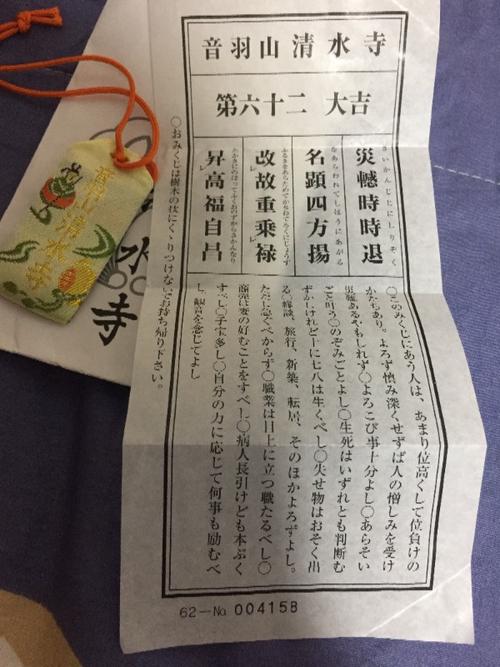 音羽山清水寺
第六十二 大吉
災轗時時退
さいかんじじにしりぞく
名顕四方揚
なあらわれてしほうにあがる
改故重乗禄
ふるきをあらためてかさねてろくにじょうず
昇高福自昌
たかきにのぼってふくおのずからさかんなり
〇このみくじにあう人は、あまり位高くして位負けの
かたちあり。よろず慎み深くせずば人の憎しみを受け
災難あるやもしれず〇よろこび事十分よし〇あらそい
ごと叶う〇のぞみごとよし〇生死はいずれとも判断む
ずかしけれど十に七八は生くべし〇失せ物はおそく出
る〇縁談、旅行、新築、転居、そのほかよろずよし。
ただし急ぐべからず〇職業は目上に立つ職たるべし〇
商売は妻の好むことをすべし〇病人長引けども本ぷく
すべし〇子宝多し〇自分の力に応じて何事も励むべ
し、観音を念じてよし
〇おみくじは樹木の枝にくゝりつけないでお持ち帰り下さい。
62－No 004158
音羽山清水寺
水寺